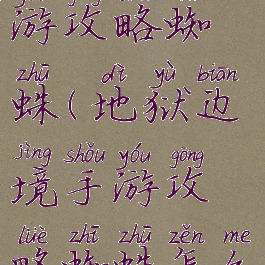 游攻略蜘
zhū dì yù biān
蛛(地狱边
jìng shǒu yóu gōng
境手游攻
lüè zhī zhū zěn me
略蜘蛛怎么